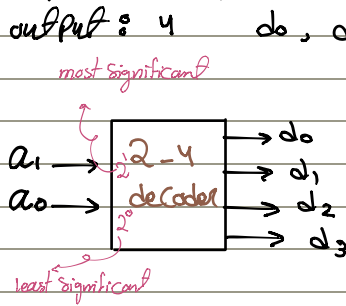 output : 4 do,
most significant
a1 → 2¹ 2-4 → do
→ d1
a0 → 2⁰ decoder → d2
→ d3
least significant